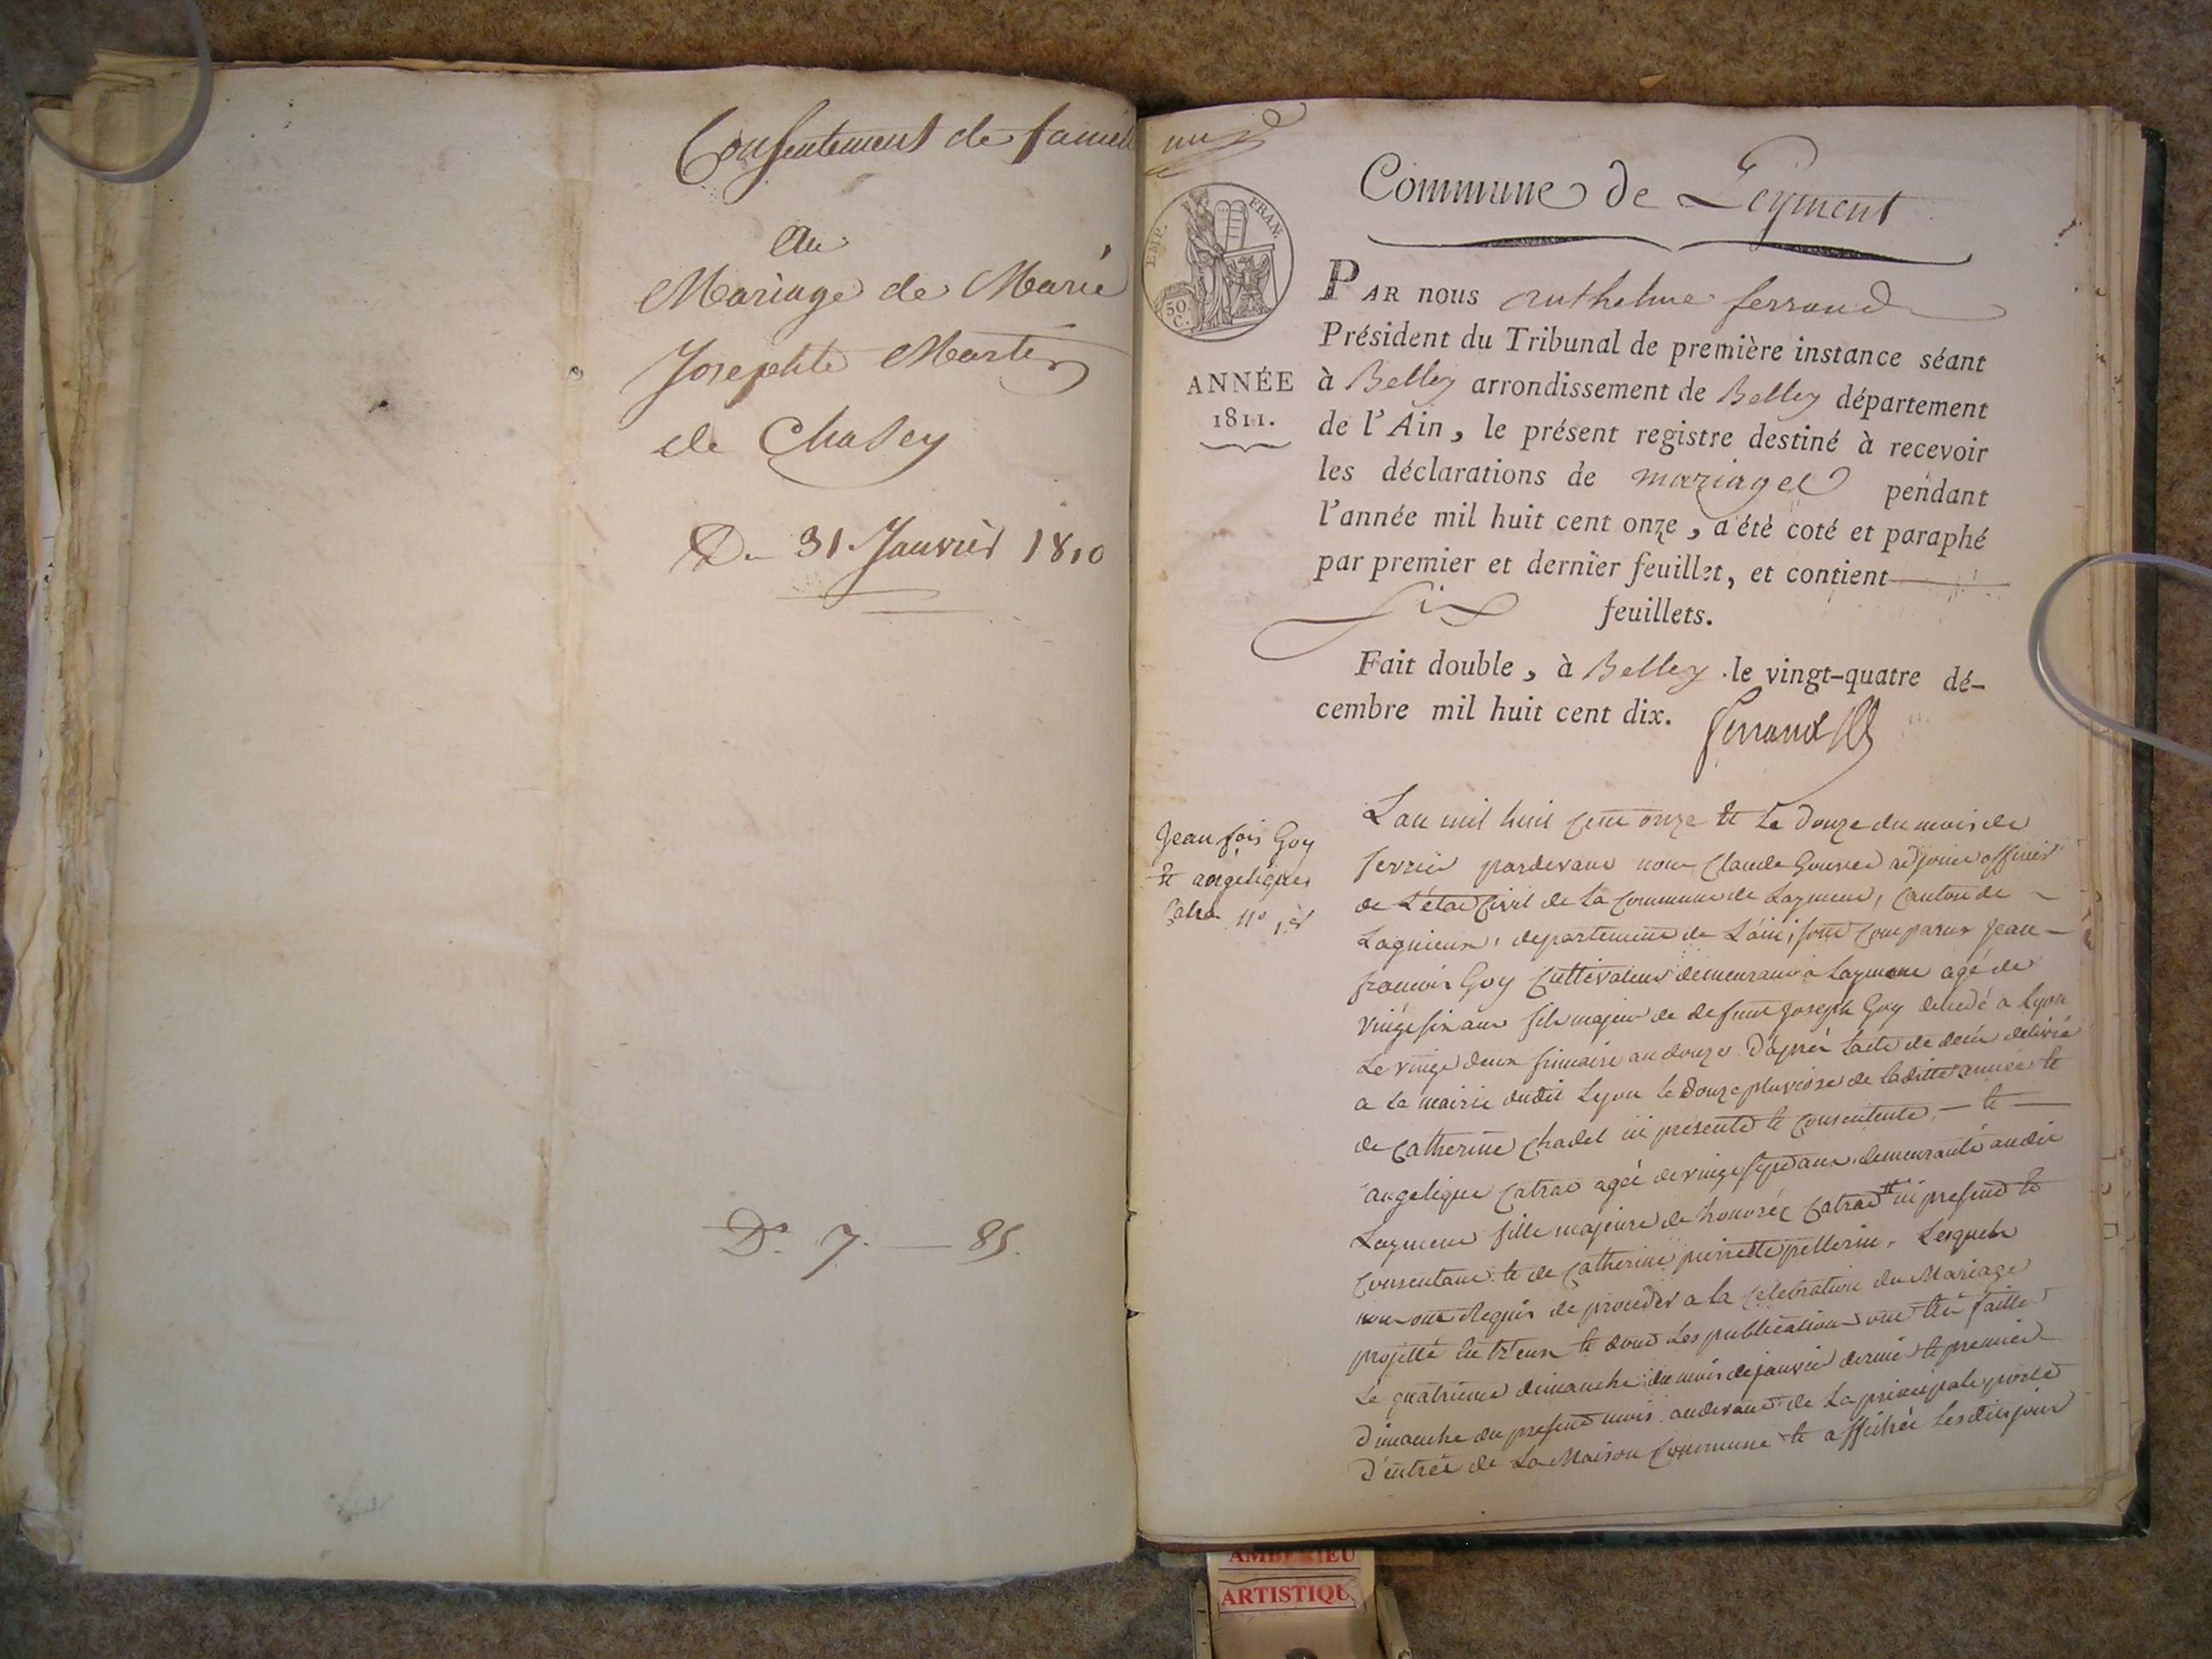 Consentement de famill
Au
Mariage de Marie
Josephte Martin
de Chasey
Du 31 Janvier 1810
Ds. 7. — 85.
un
EMP. FRAN.
50.
C.
Commune de Leyment
PAR nous anthelme ferrand
Président du Tribunal de première instance séant
ANNÉE
1811.
à Belley arrondissement de Belley département
de l'Ain, le présent registre destiné à recevoir
les déclarations de mariages pendant
l'année mil huit cent onze, a été coté et paraphé
par premier et dernier feuillet, et contient
six feuillets.
Fait double, à Belley le vingt-quatre dé-
cembre mil huit cent dix. ferrand
Jean fois Goy
et angelique
Catra n° 1er
L'an mil huit cent onze et le douze du mois de
fevrier pardevant nous Claude adjoint officier
de L'état Civil de la Commune de Laymens, Canton de
Lagnieux, departement de L'ain, sont Comparus Jean
francois Goy Cultivateur demeurant a Layment agé de
vingt six ans fils majeur de defunt Joseph Goy decedé a Lyon
Le vingt deux frimaire an douze d'après lacte de deces délivré
a la mairie dudit Lyon le douze pluviose de laditte année et
de Catherine Chadel ici presente et Consentente, — et —
angelique Catrat agée de vingt sept ans demeurante audit
Layment fille majeure de honoré Catrad ici present et
Consentant et de Catherine pierrette pellerin. Lesquels
nous ont Requis de proceder a la Celebration du Mariage
projetté entr'eux et dont Les publications ont été faittes
Le quatrieme dimanche du mois de janvier dernier et premier
Dimanche du present mois audevant de La principale porte
D'entrée de La Maison Commune et affichée Lesdits jour
AMBERIEU
ARTISTIQU